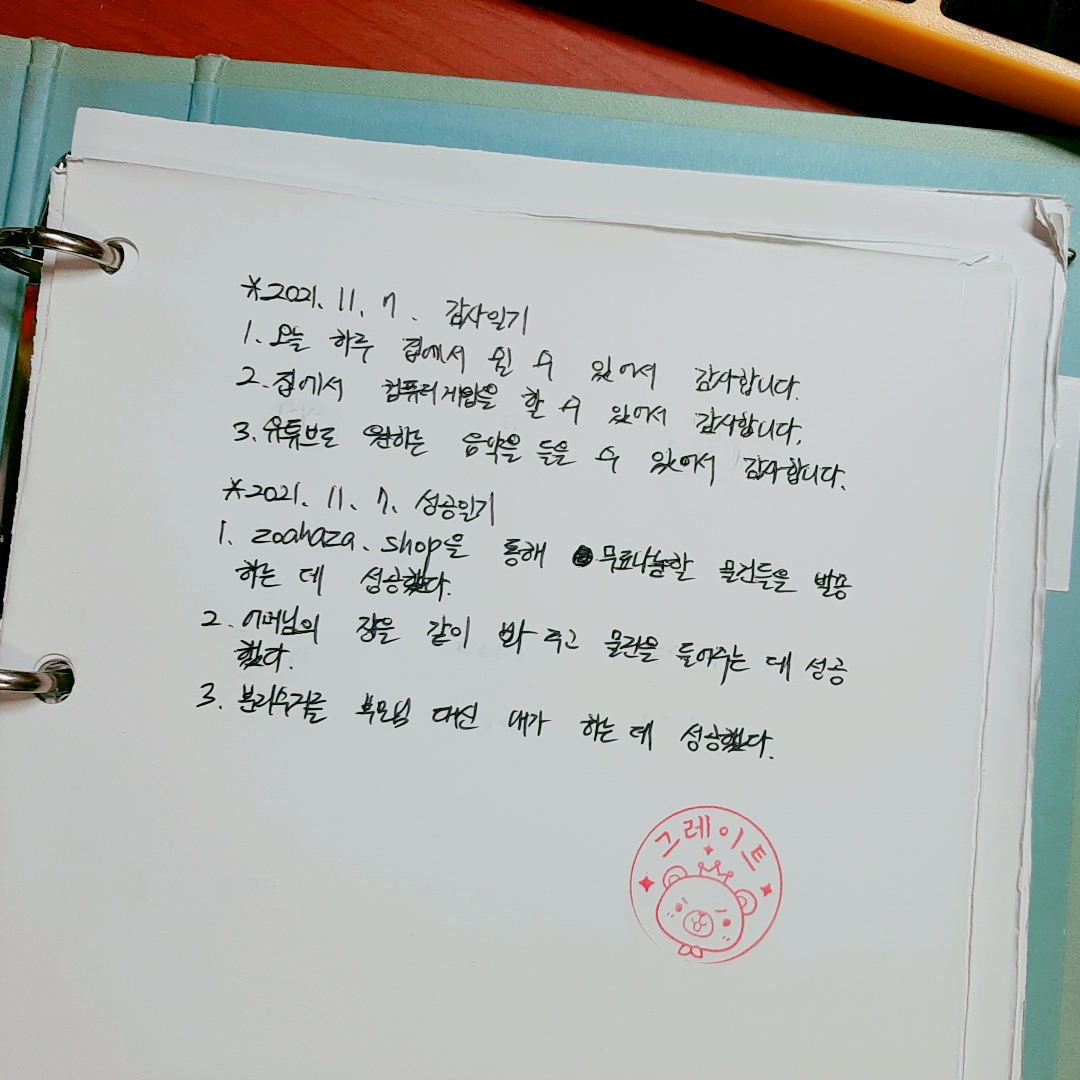 *2021. 11. 7. 감사일기
1. 오늘 하루 집에서 쉴 수 있어서 감사합니다.
2. 집에서 컴퓨터게임을 할 수 있어서 감사합니다.
3. 유튜브로 원하는 음악을 들을 수 있어서 감사합니다.
*2021. 11. 7. 성공일기
1. zoahaza.shop을 통해 무료나눔할 물건들을 발송
하는 데 성공했다.
2. 어머님의 장을 같이 봐 주고 물건을 들어주는 데 성공
했다.
3. 분리수거를 부모님 대신 내가 하는 데 성공했다.
그레이트